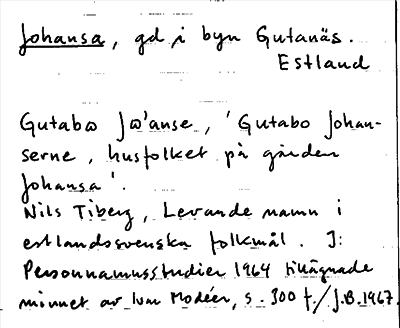 Johansa, gd i byn Gutanäs.
Estland
Gutabω Jω'anse, 'Gutabo Johan-
serne, husfolket på gården
Johansa'.
Nils Tiberg, Levande namn i
estlandssvenska folkmål. I:
Personnamnsstudier 1964 tillägnade
minnet av Ivar Modéer, s. 300 f./J.B.1967.